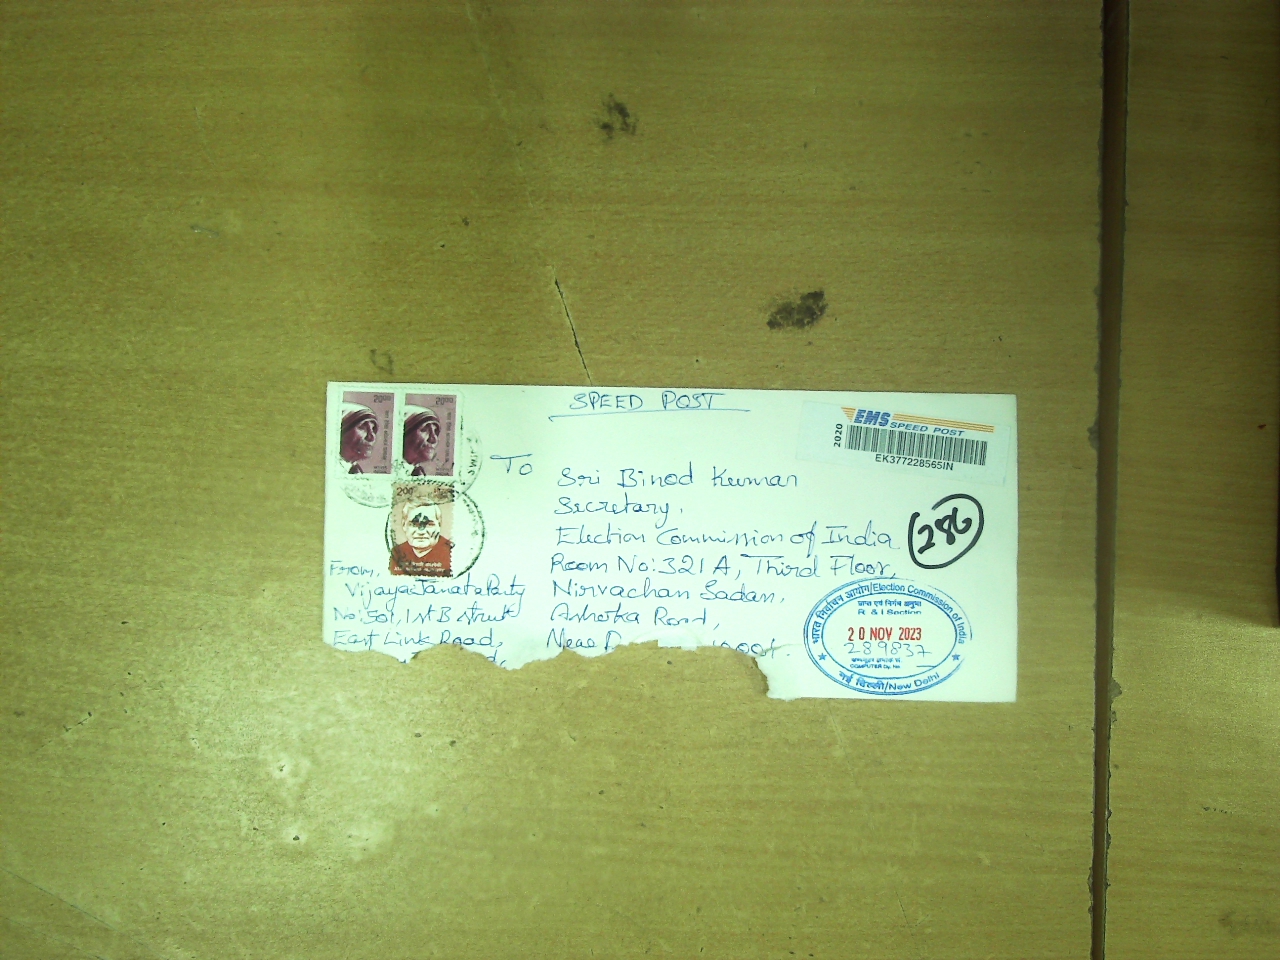 SPEED POST
2000
2000
200
2020
EMS SPEED POST
EK377228565IN
To
Sri Binod Kumar
Secretary,
Election Commission of India
Room No: 321 A, Third Floor,
Nirvachan Sadan,
Ashoka Road,
286
From,
Vijaya Janata Party
No: 501, 1st B Street
East Link Road,
भारत निर्वाचन आयोग/Election Commission of India
प्राप्त एवं निर्गम अनुभाग
R & I Section
20 NOV 2023
289837
COMPUTER Dy. No.
नई दिल्ली/New Delhi